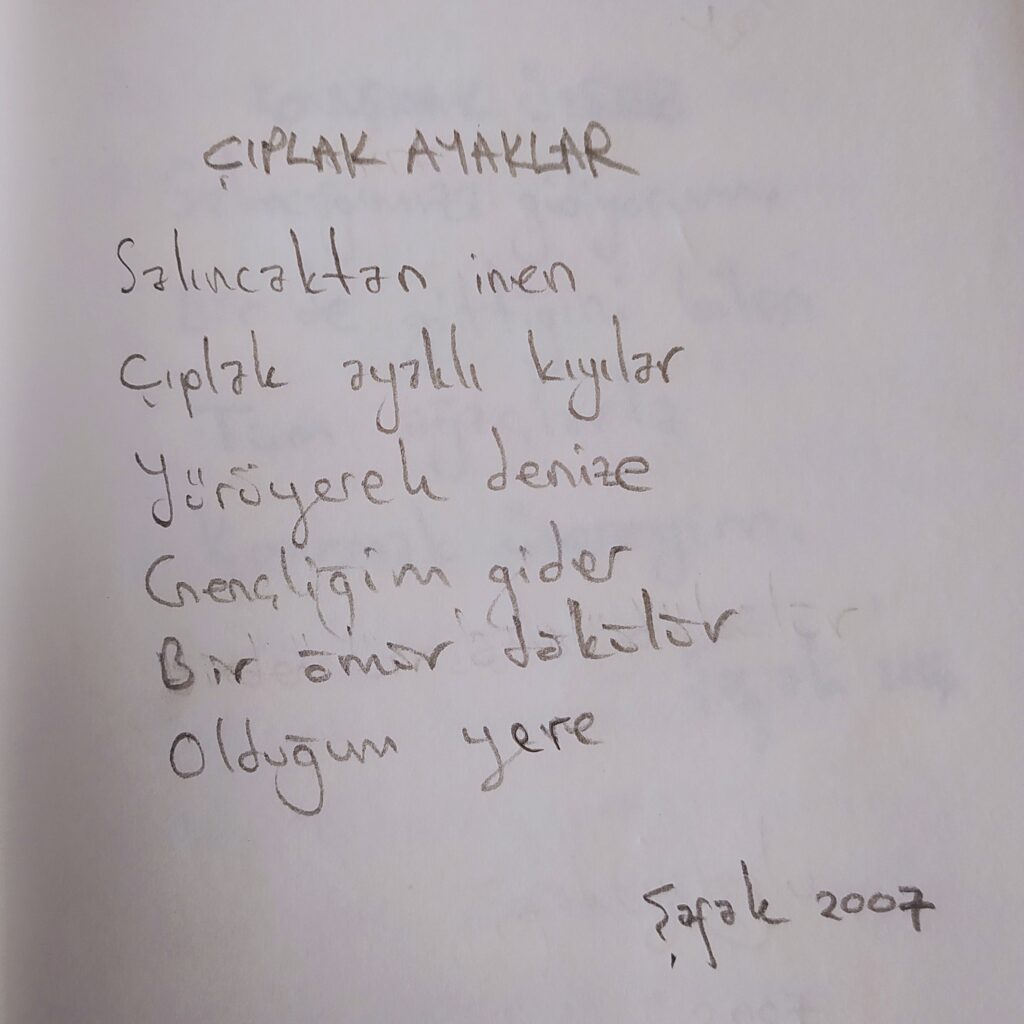 ÇIPLAK AYAKLAR
Salıncaktan inen
Çıplak ayaklı kıyılar
Yürüyerek denize
Gençliğim gider
Bir ömür dökülür
Olduğum yere
Şafak 2007